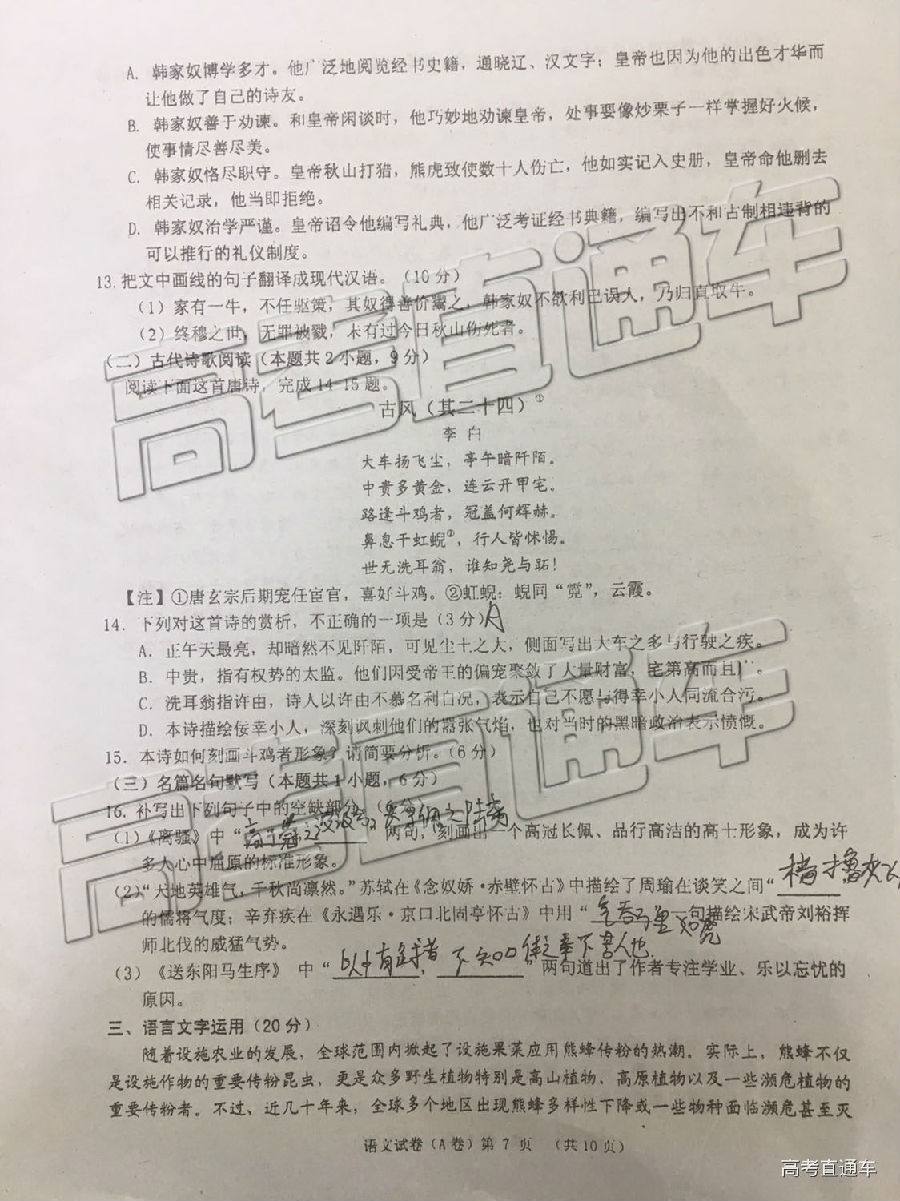 A. 韩家奴博学多才。他广泛地阅览经书史籍，通晓辽、汉文字；皇帝也因为他的出色才华而
让他做了自己的诗友。
B. 韩家奴善于劝谏。和皇帝闲谈时，他巧妙地劝谏皇帝，处事要像炒栗子一样掌握好火候，
使事情尽善尽美。
C. 韩家奴恪尽职守。皇帝秋山打猎，熊虎致使数十人伤亡，他如实记入史册，皇帝命他删去
相关记录，他当即拒绝。
D. 韩家奴治学严谨。皇帝诏令他编写礼典，他广泛考证经书典籍，编写出不和古制相违背的
可以推行的礼仪制度。
13. 把文中画线的句子翻译成现代汉语。（10分）
（1）家有一牛，不任驱策，其奴得善价鬻之，韩家奴不欲利己误人，乃归直取牛。
（2）终穆之世，无罪被戮，未有过今日秋山伤死者。
（二）古代诗歌阅读（本题共2小题，9分）
阅读下面这首唐诗，完成14-15题。
古风（其二十四）①
李 白
大车扬飞尘，亭午暗阡陌。
中贵多黄金，连云开甲宅。
路逢斗鸡者，冠盖何辉赫。
鼻息干虹蜺②，行人皆怵惕。
世无洗耳翁，谁知尧与跖！
【注】①唐玄宗后期宠任宦官，喜好斗鸡。②虹蜺：蜺同“霓”，云霞。
14. 下列对这首诗的赏析，不正确的一项是（3分）A
A. 正午天最亮，却暗然不见阡陌，可见尘土之大，侧面写出大车之多与行驶之疾。
B. 中贵，指有权势的太监。他们因受帝王的偏宠聚敛了大量财富，宅第高而且广。
C. 洗耳翁指许由，诗人以许由不慕名利自况，表示自己不愿与得幸小人同流合污。
D. 本诗描绘佞幸小人，深刻讽刺他们的嚣张气焰，也对当时的黑暗政治表示愤慨。
15. 本诗如何刻画斗鸡者形象？请简要分析。（6分）
（三）名篇名句默写（本题共1小题，6分）
16. 补写出下列句子中的空缺部分。（6分）
（1）《离骚》中“高余冠之岌岌兮 长余佩之陆离”两句，刻画出一个高冠长佩、品行高洁的高士形象，成为许
多人心中屈原的标准形象。
（2）“天地英雄气，千秋尚凛然。”苏轼在《念奴娇·赤壁怀古》中描绘了周瑜在谈笑之间“樯橹灰飞
的儒将气度；辛弃疾在《永遇乐·京口北固亭怀古》中用“气吞万里如虎 一句描绘宋武帝刘裕挥
师北伐的威猛气势。
（3）《送东阳马生序》 中“以中有足乐者 不知口体之奉不若人也 ”两句道出了作者专注学业、乐以忘忧的
原因。
三、语言文字运用（20分）
随着设施农业的发展，全球范围内掀起了设施果菜应用熊蜂传粉的热潮。实际上，熊蜂不仅
是设施作物的重要传粉昆虫，更是众多野生植物特别是高山植物、高原植物以及一些濒危植物的
重要传粉者。不过、近几十年来，全球多个地区出现熊蜂多样性下降或一些物种面临濒危甚至灭
语文试卷（A卷）第 7 页 （共10页）
高考直通车
高考直通车
高考直通车